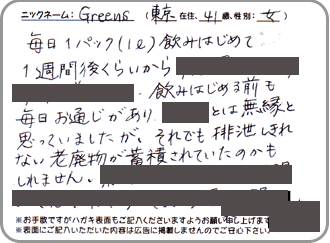 ニックネーム: Greens (東京在住、41歳、性別: 女)
毎日1パック(1ℓ)飲みはじめて
1週間後くらいから
飲みはじめる前も
毎日お通じがあり、 とは無縁と
思っていましたが、それでも排泄しきれ
ない老廃物が蓄積されていたのかも
しれません。
※お手数ですがハガキ表面もご記入くださいますようお願い申し上げます
※表面にご記入いただいた内容は広告に掲載しませんのでご安心下さい。